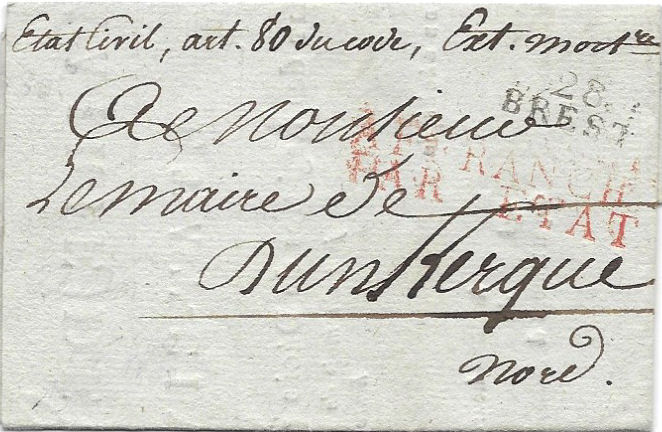 Etat Civil, art. 80 du code, Ext. mort.re
28
BREST
A Monsieur
AFFRANCH
PAR ETAT
Le maire de
Dunkerque
Nord.